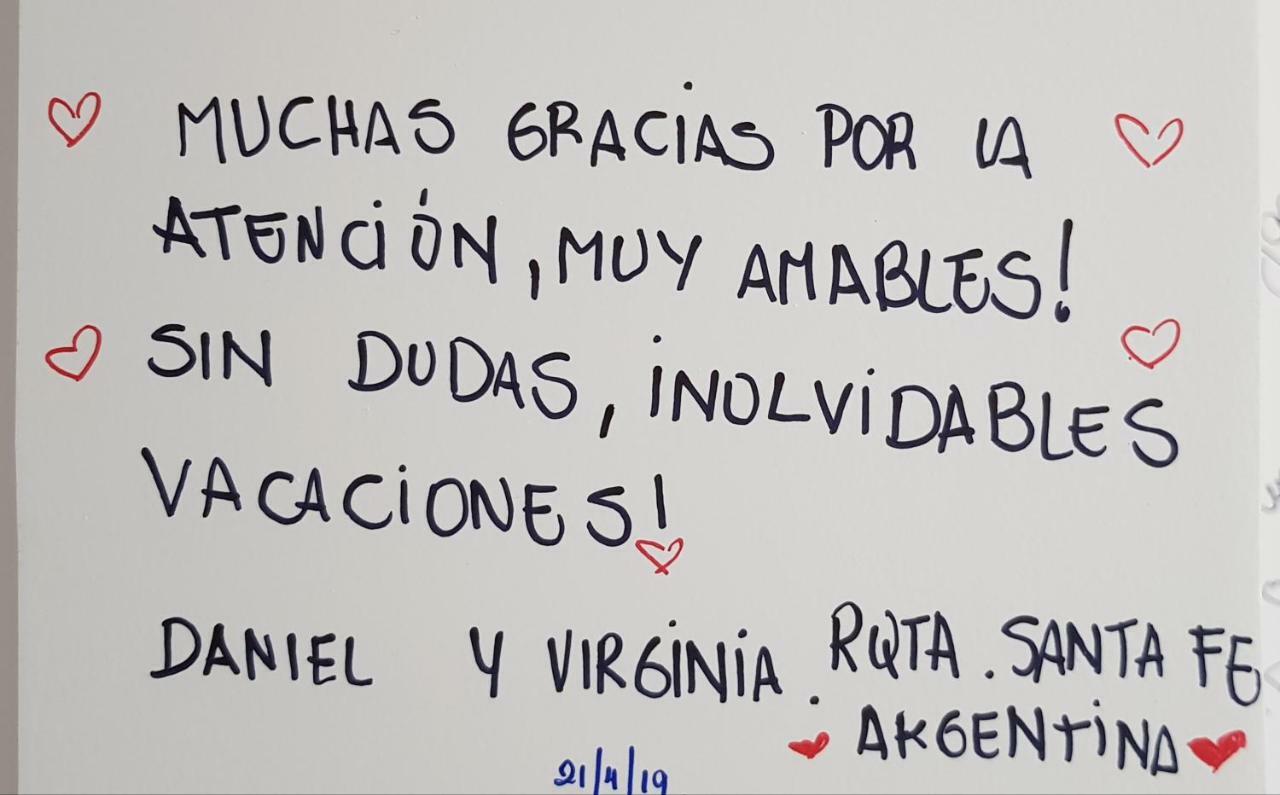 MUCHAS GRACIAS POR LA
ATENCIÓN, MUY AMABLES!
SIN DUDAS, INOLVIDABLES
VACACIONES!
DANIEL Y VIRGINIA. RQTA. SANTA FE
ARGENTINA
21/4/19